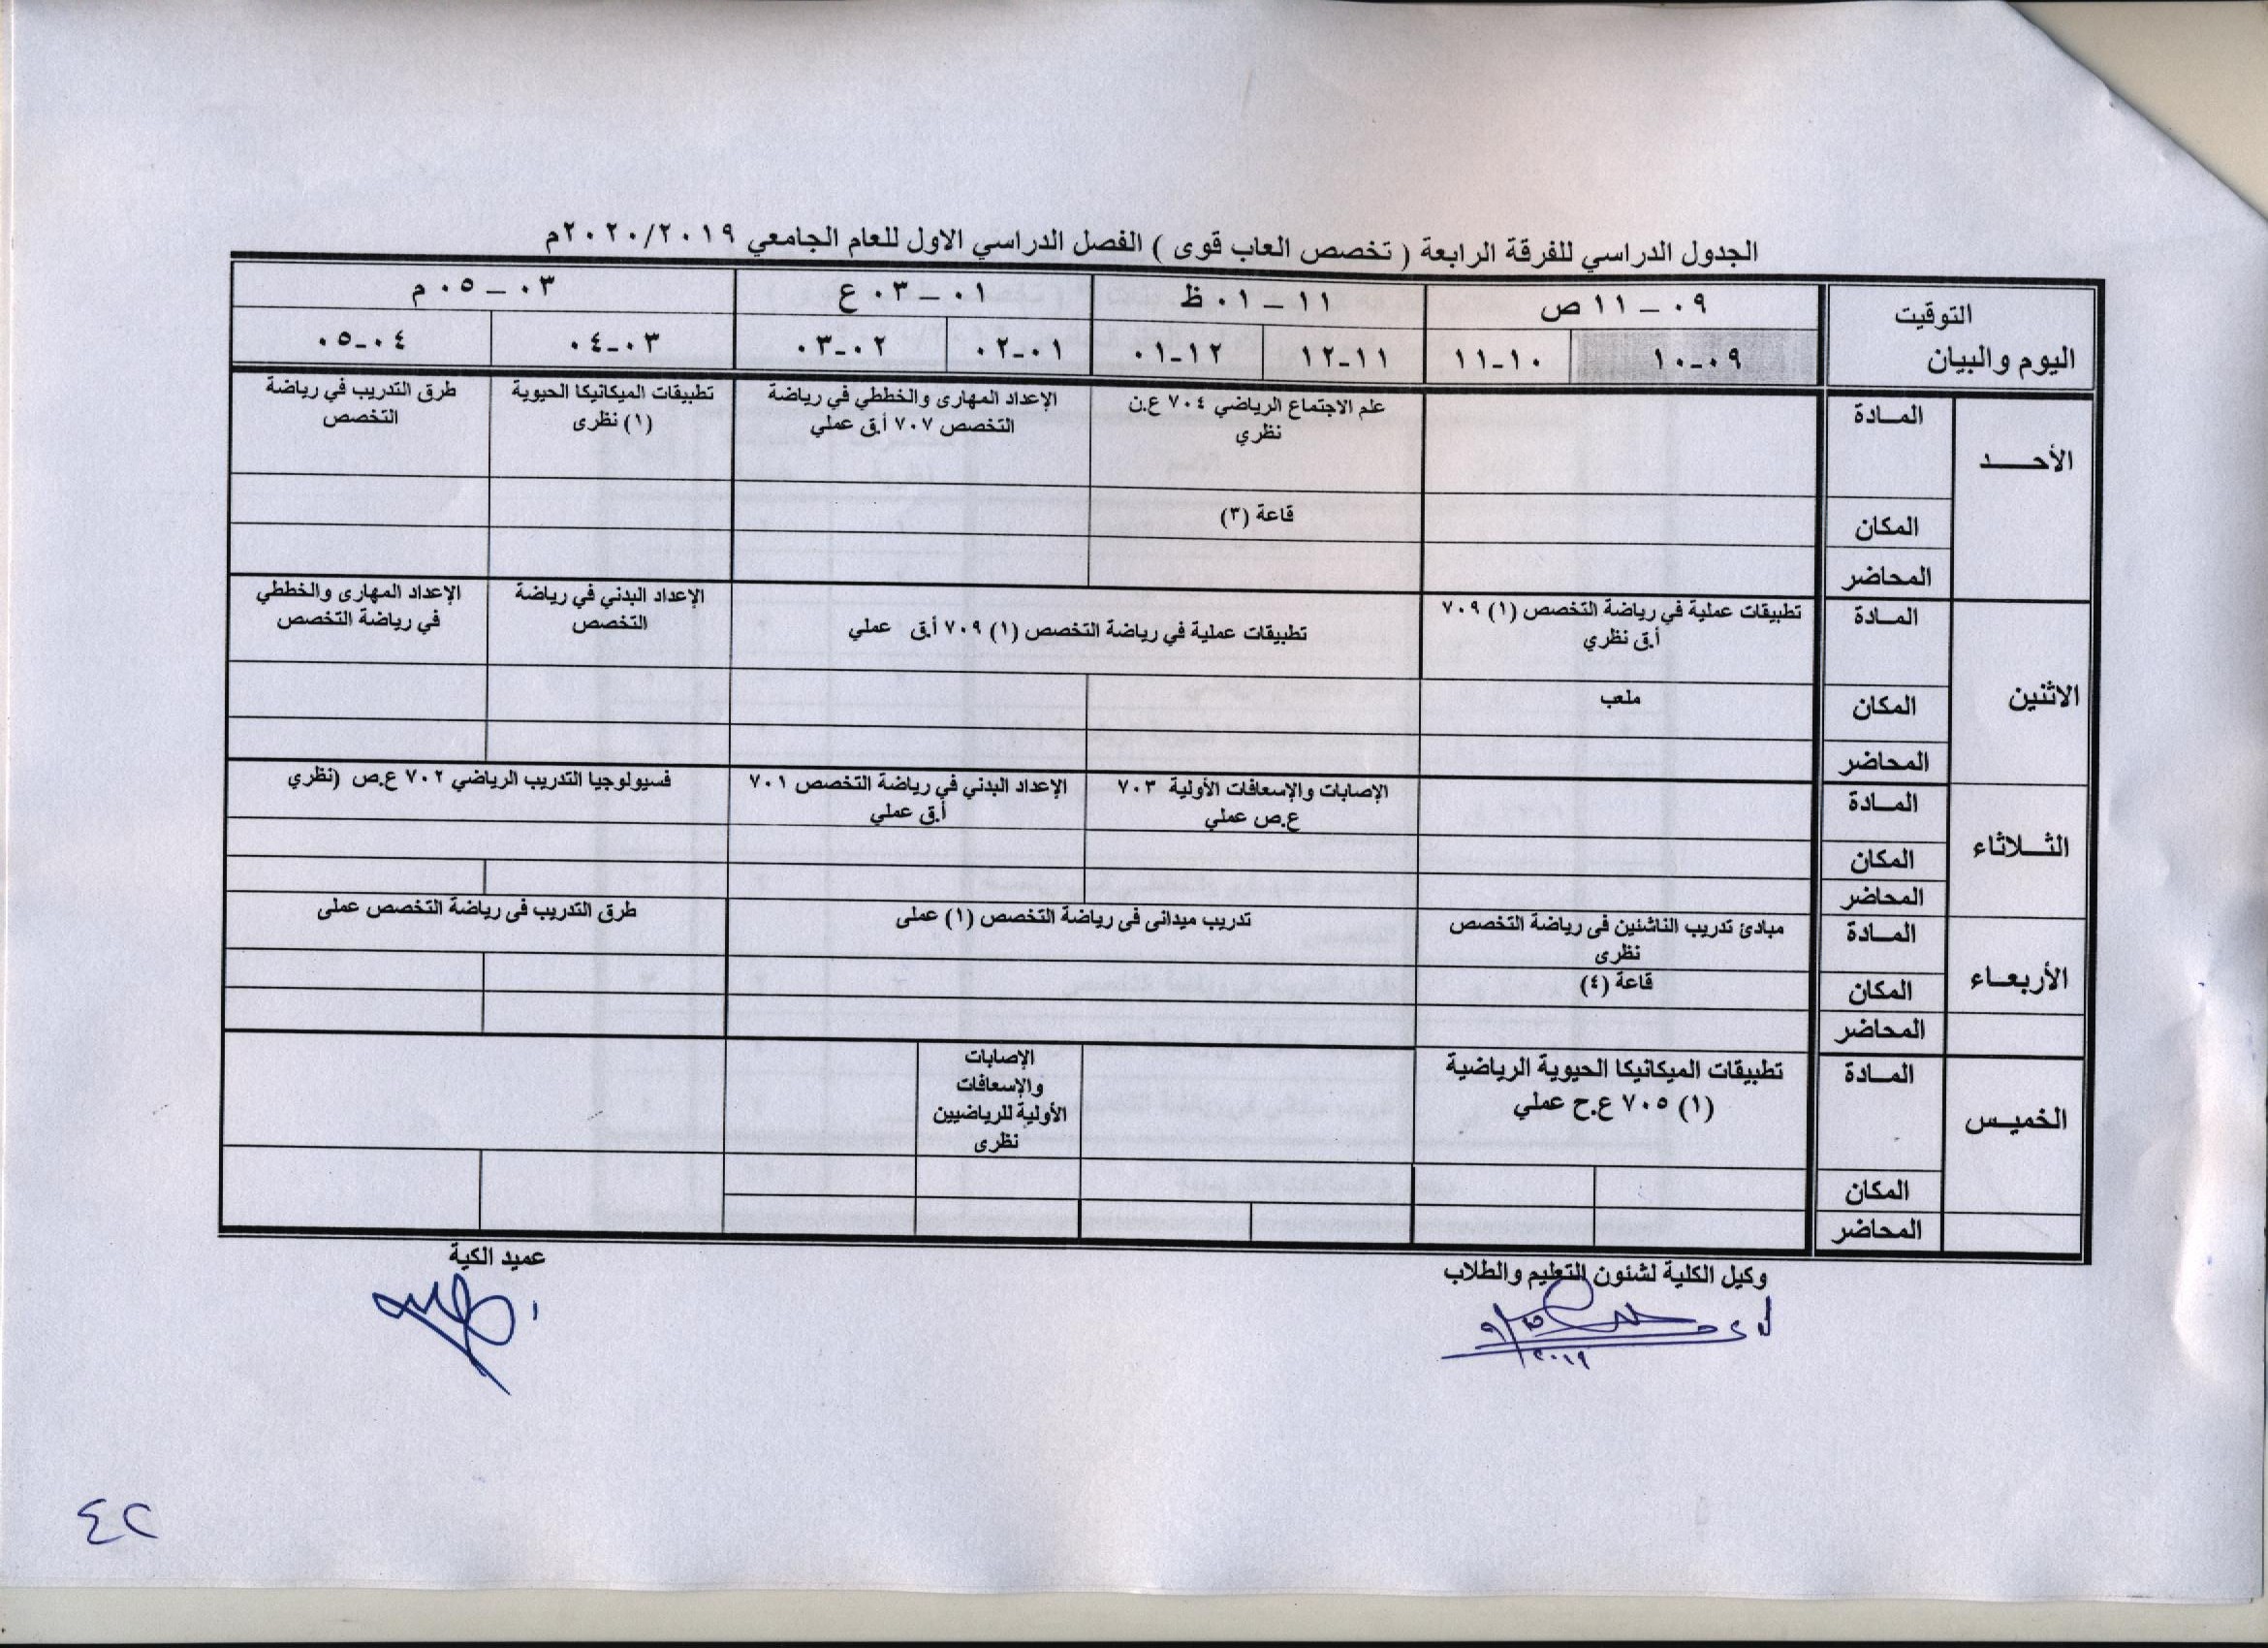 الجدول الدراسي للفرقة الرابعة ( تخصص العاب قوى ) الفصل الدراسي الاول للعام الجامعي ٢٠٢٠/٢٠١٩م
التوقيت
اليوم والبيان
٠٩ – ١١ ص
١١ – ٠١ ظ
٠١ – ٠٣ ع
٠٣ – ٠٥ م
٠٩-١٠
١٠-١١
١١-١٢
١٢-٠١
٠١-٠٢
٠٢-٠٣
٠٣-٠٤
٠٤-٠٥
الأحـــد
المــادة
علم الاجتماع الرياضي ٧٠٤ ع.ن
نظري
الإعداد المهارى والخططي في رياضة
التخصص ٧٠٧ أ.ق عملي
تطبيقات الميكانيكا الحيوية
(١) نظرى
طرق التدريب في رياضة
التخصص
المكان
قاعة (٣)
المحاضر
الاثنين
المــادة
تطبيقات عملية في رياضة التخصص (١) ٧٠٩
أ.ق نظري
تطبيقات عملية في رياضة التخصص (١) ٧٠٩ أ.ق عملي
الإعداد البدني في رياضة
التخصص
الإعداد المهارى والخططي
في رياضة التخصص
المكان
ملعب
المحاضر
الثــلاثاء
المــادة
الإصابات والإسعافات الأولية ٧٠٣
ع.ص عملي
الإعداد البدني في رياضة التخصص ٧٠١
أ.ق عملي
فسيولوجيا التدريب الرياضي ٧٠٢ ع.ص (نظري
المكان
المحاضر
الأربعـاء
المــادة
مبادئ تدريب الناشئين فى رياضة التخصص
نظرى
تدريب ميدانى فى رياضة التخصص (١) عملى
طرق التدريب فى رياضة التخصص عملى
المكان
قاعة (٤)
المحاضر
الخميـس
المــادة
تطبيقات الميكانيكا الحيوية الرياضية
(١) ٧٠٥ ع.ح عملي
الإصابات
والإسعافات
الأولية للرياضيين
نظرى
المكان
المحاضر
وكيل الكلية لشئون التعليم والطلاب
عميد الكية
٢٠١٩
٤٢